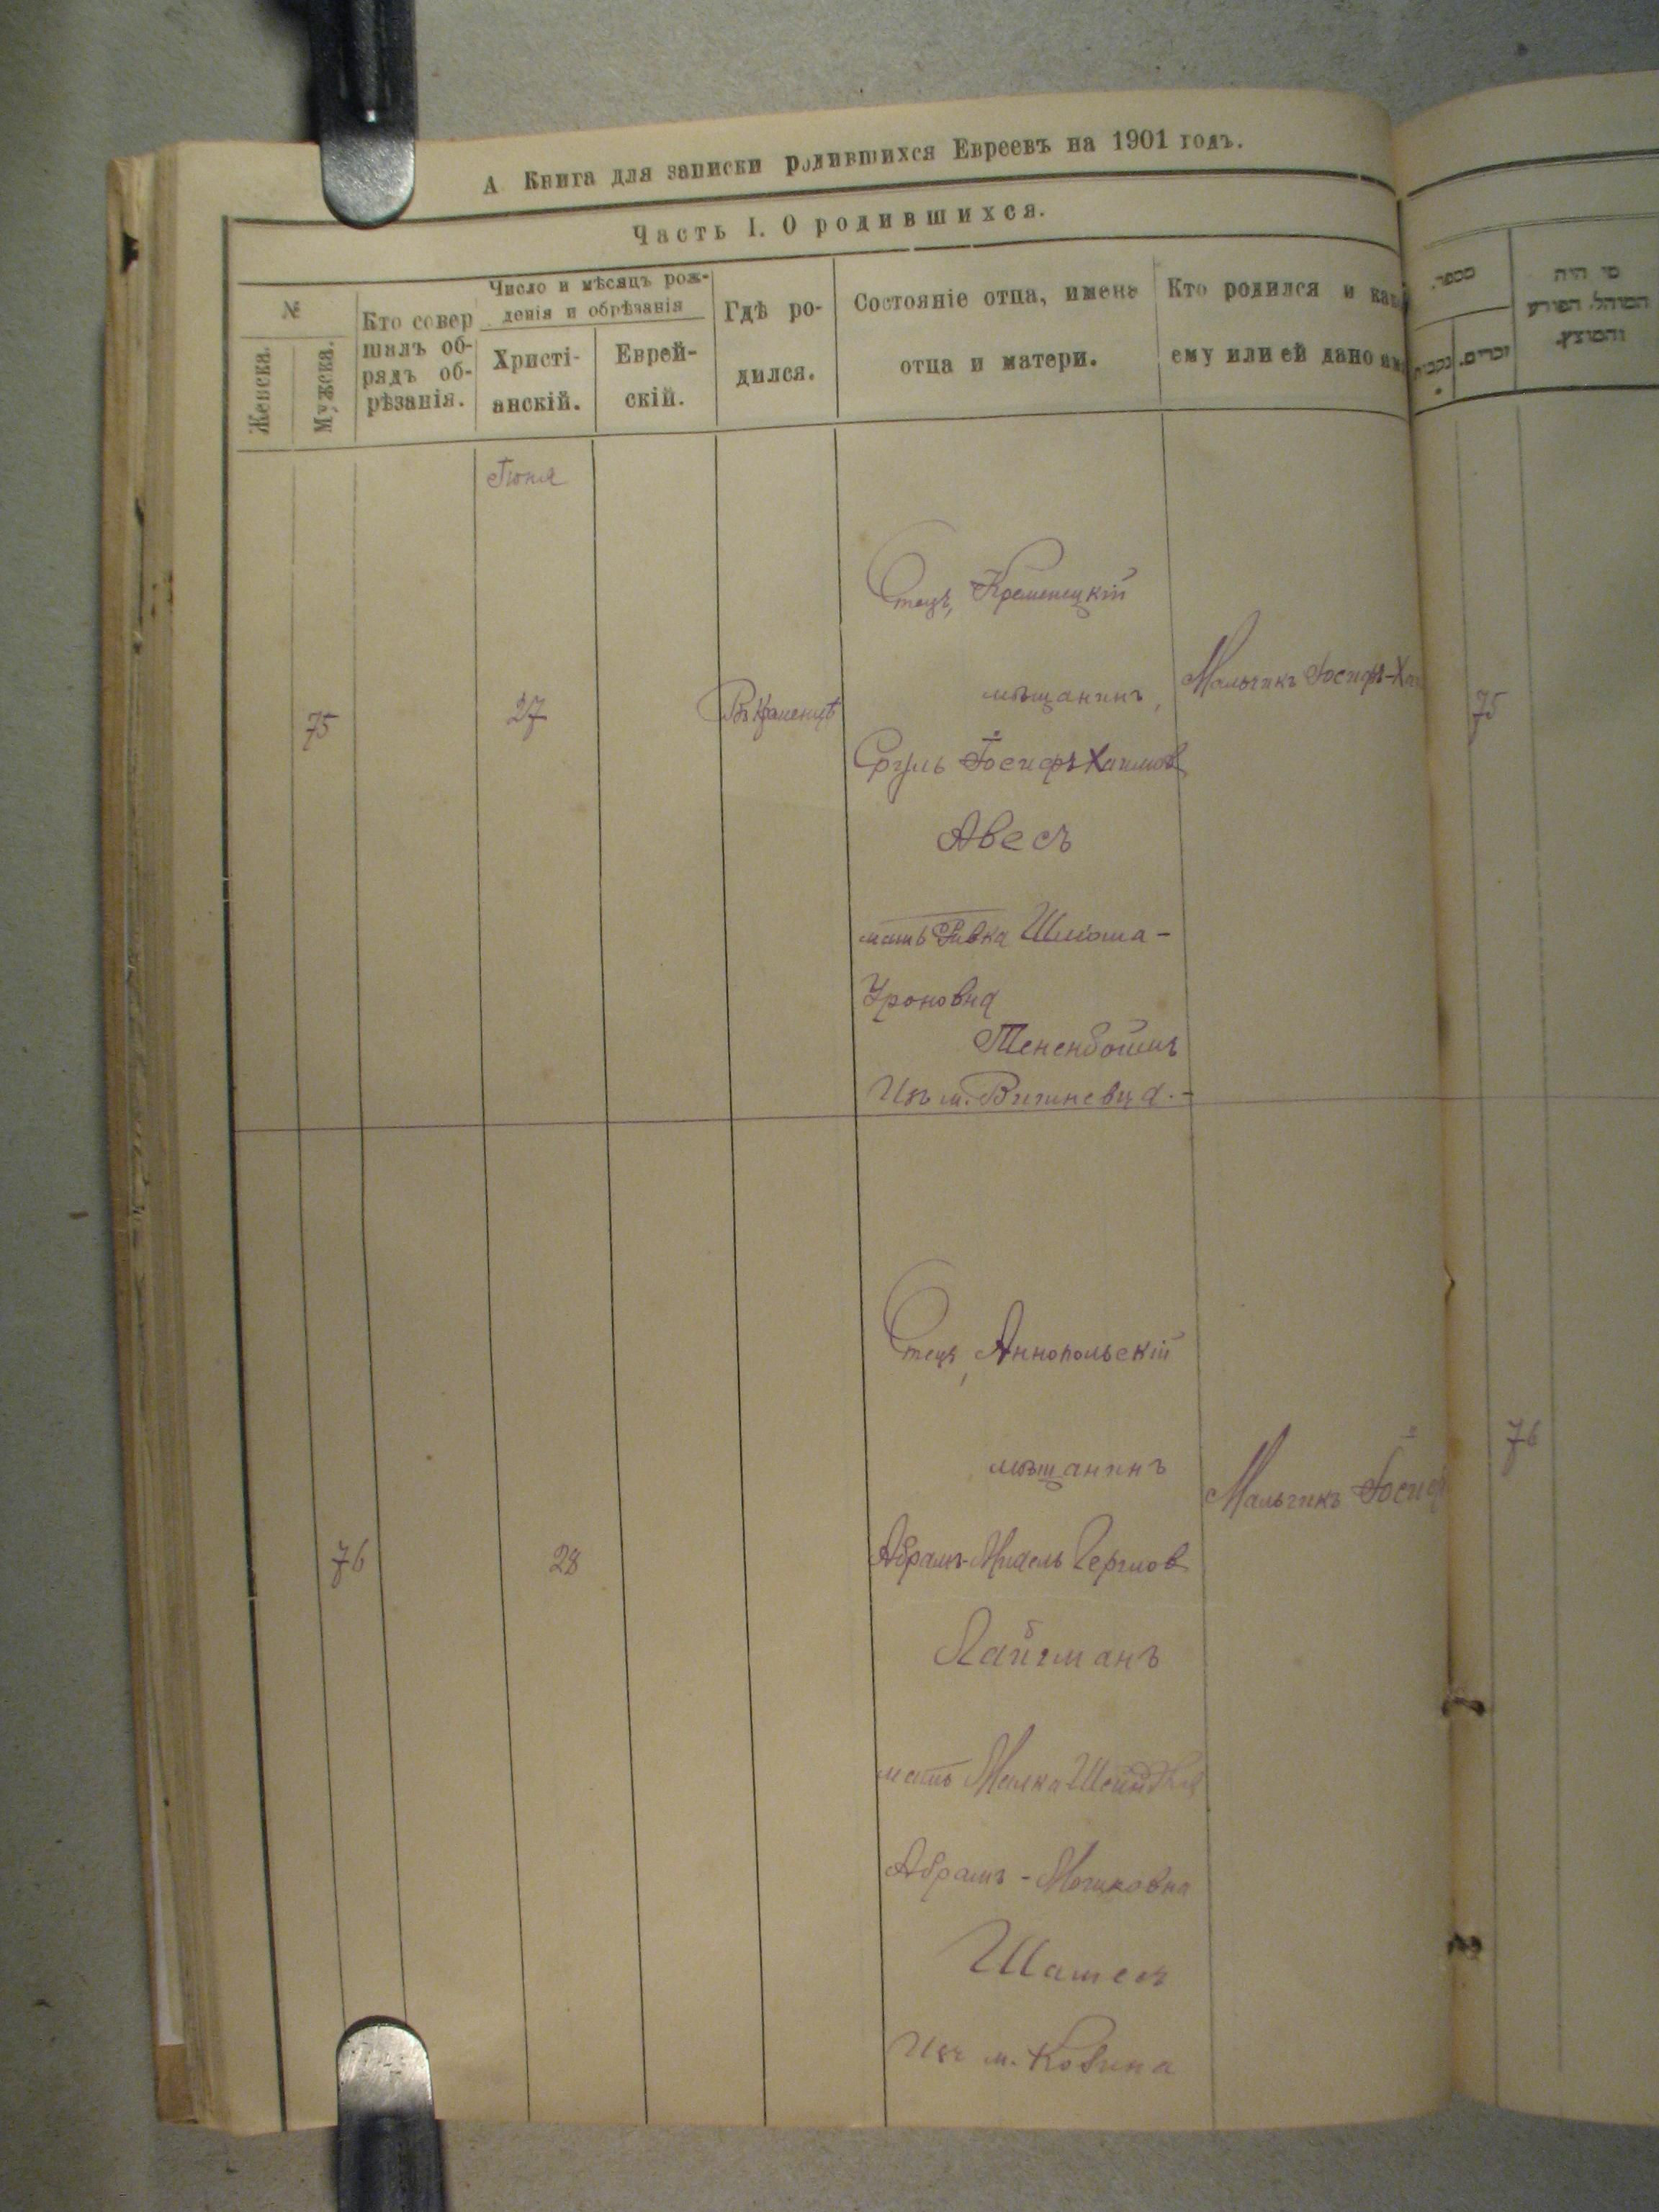 А Книга для записки родившихся Евреевъ на 1901 годъ.
Часть I. О родившихся.
№
Женска.
Мужска.
Кто совер
шилъ об-
рядъ об-
рѣзанія.
Число и мѣсяцъ рож-
денія и обрѣзанія
Христі-
анскій.
Еврей-
скій.
Гдѣ ро-
дился.
Состояніе отца, имена
отца и матери.
Кто родился и как
ему или ей дано им
מספר.
נקבות
זכרים.
מי היה
המוהל, הפורע
והמוצץ.
Іюня
75
27
Въ Кременцѣ
Отецъ, Кременецкій
мѣщанинъ,
Сруль Іосифъ Хаимов
Авесъ
мать Ривка Шлёма-
Уроновна
Тененбоймъ
Изъ м. Вишневца.-
Мальчикъ Іосифъ-Ха
75
76
28
Отецъ, Аннопольскій
мѣщанинъ
Абрамъ-Мидель Гершов
Лайзманъ
мать Малка Шейндля
Абрамъ-Мошковна
Шатель
Изъ м. Ковина
Мальчикъ Іосиф
76